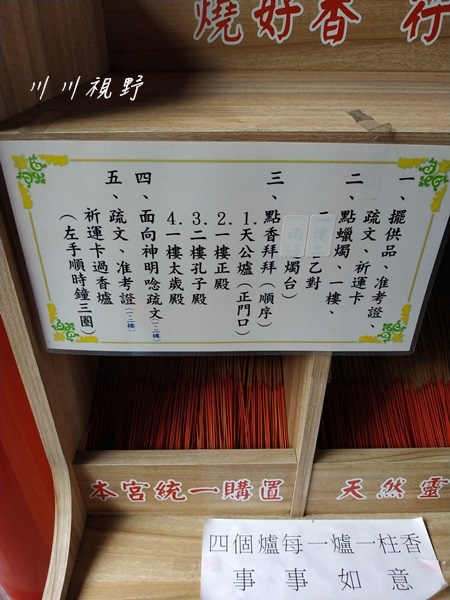 燒好香 行
川川視野
一、擺供品、准考證、
疏文、祈運卡
二、點蠟燭、一樓、
乙對
燭台）
三、點香拜拜（順序）
1.天公爐（正門口）
2.一樓正殿
3.二樓孔子殿
4.一樓太歲殿
四、面向神明唸疏文（一、二樓）
五、疏文、准考證（一、二樓）
祈運卡過香爐
（左手順時鐘三圈）
本宮統一購置
天然靈
四個爐每一爐一柱香
事事如意